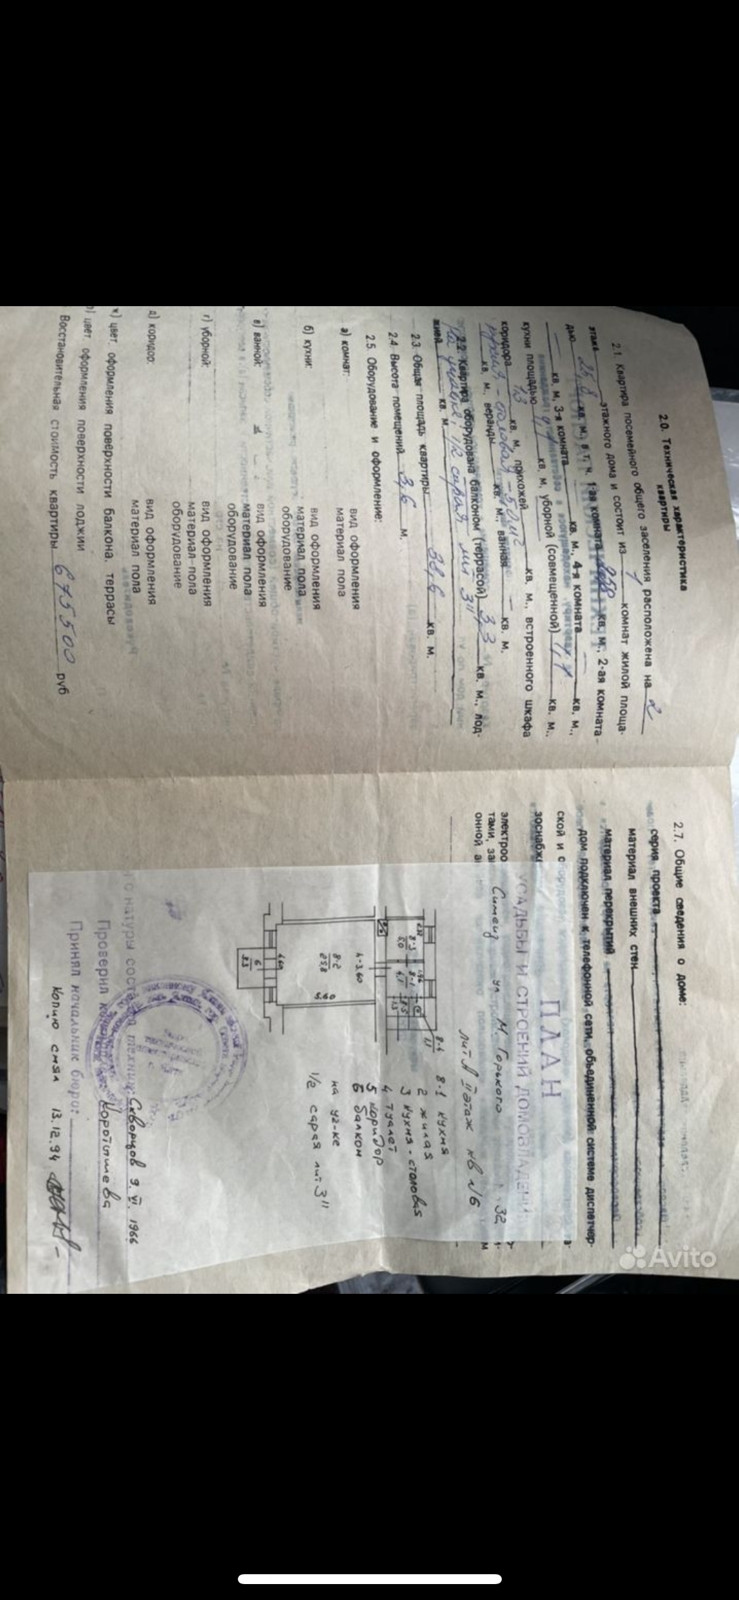 2.0. Техническая характеристика
квартиры
2.1. Квартира посемейного общего заселения расположена на 2
этаже этажного дома и состоит из 1 комнат жилой площа-
дью 25,8 кв. м, в т. ч. 1-ая комната кв. м., 2-ая комната -
кв. м, 3-я комната кв. м, 4-я комната кв. м.,
кухни площадью кв. м, уборной (совмещенной) кв. м.,
коридора 1,3 кв. м, прихожей кв. м., встроенного шкафа
кв. м, веранды кв. м, ванная кв. м.
кухня-столовая - 5,0 м2
2.2. Квартира оборудована балконом (террасой) 3,3 кв. м., лод-
жией кв. м.
На участке, 1/2 сарая лит "З"
2.3. Общая площадь квартиры 38,6 кв. м.
2.4. Высота помещений 3,6 м.
2.5. Оборудование и оформление:
а) комнат: вид оформления
материал пола
б) кухни: вид оформления
материал пола
оборудование
в) ванной: вид оформления
материал пола
оборудование
г) уборной: вид оформления
материал пола
оборудование
д) коридор: вид оформления
материал пола
ж) цвет оформления поверхности балкона, террасы
цвет оформления поверхности лоджии
Восстановительная стоимость квартиры 675500 руб
2.7. Общие сведения о доме:
серия проекта
материал внешних стен
материал перекрытий
дом подключен к телефонной сети, объединенной системе диспетчер-
ской и с
зоснабж
электроо
тами, за
онной
ПЛАН
УСАДЬБЫ И СТРОЕНИЙ ДОМОВЛАДЕНИ
Симеиз ул М. Горького 32
лит А II этаж кв N6
8-1 кухня
2 жилая
3 кухня-столовая
4 туалет
5 коридор
6 балкон
на уч-ке
1/2 сарая лит "З"
8-2
25.8
4-3.60
5.60
4.60
6
3.3
8-3
5.0
8-1
8-4
1.1
натуры состав техник: Скворцов 9.VI.1966
Проверил Коротышева
Принял начальник бюро:
Копию снял 13.12.94
Avito